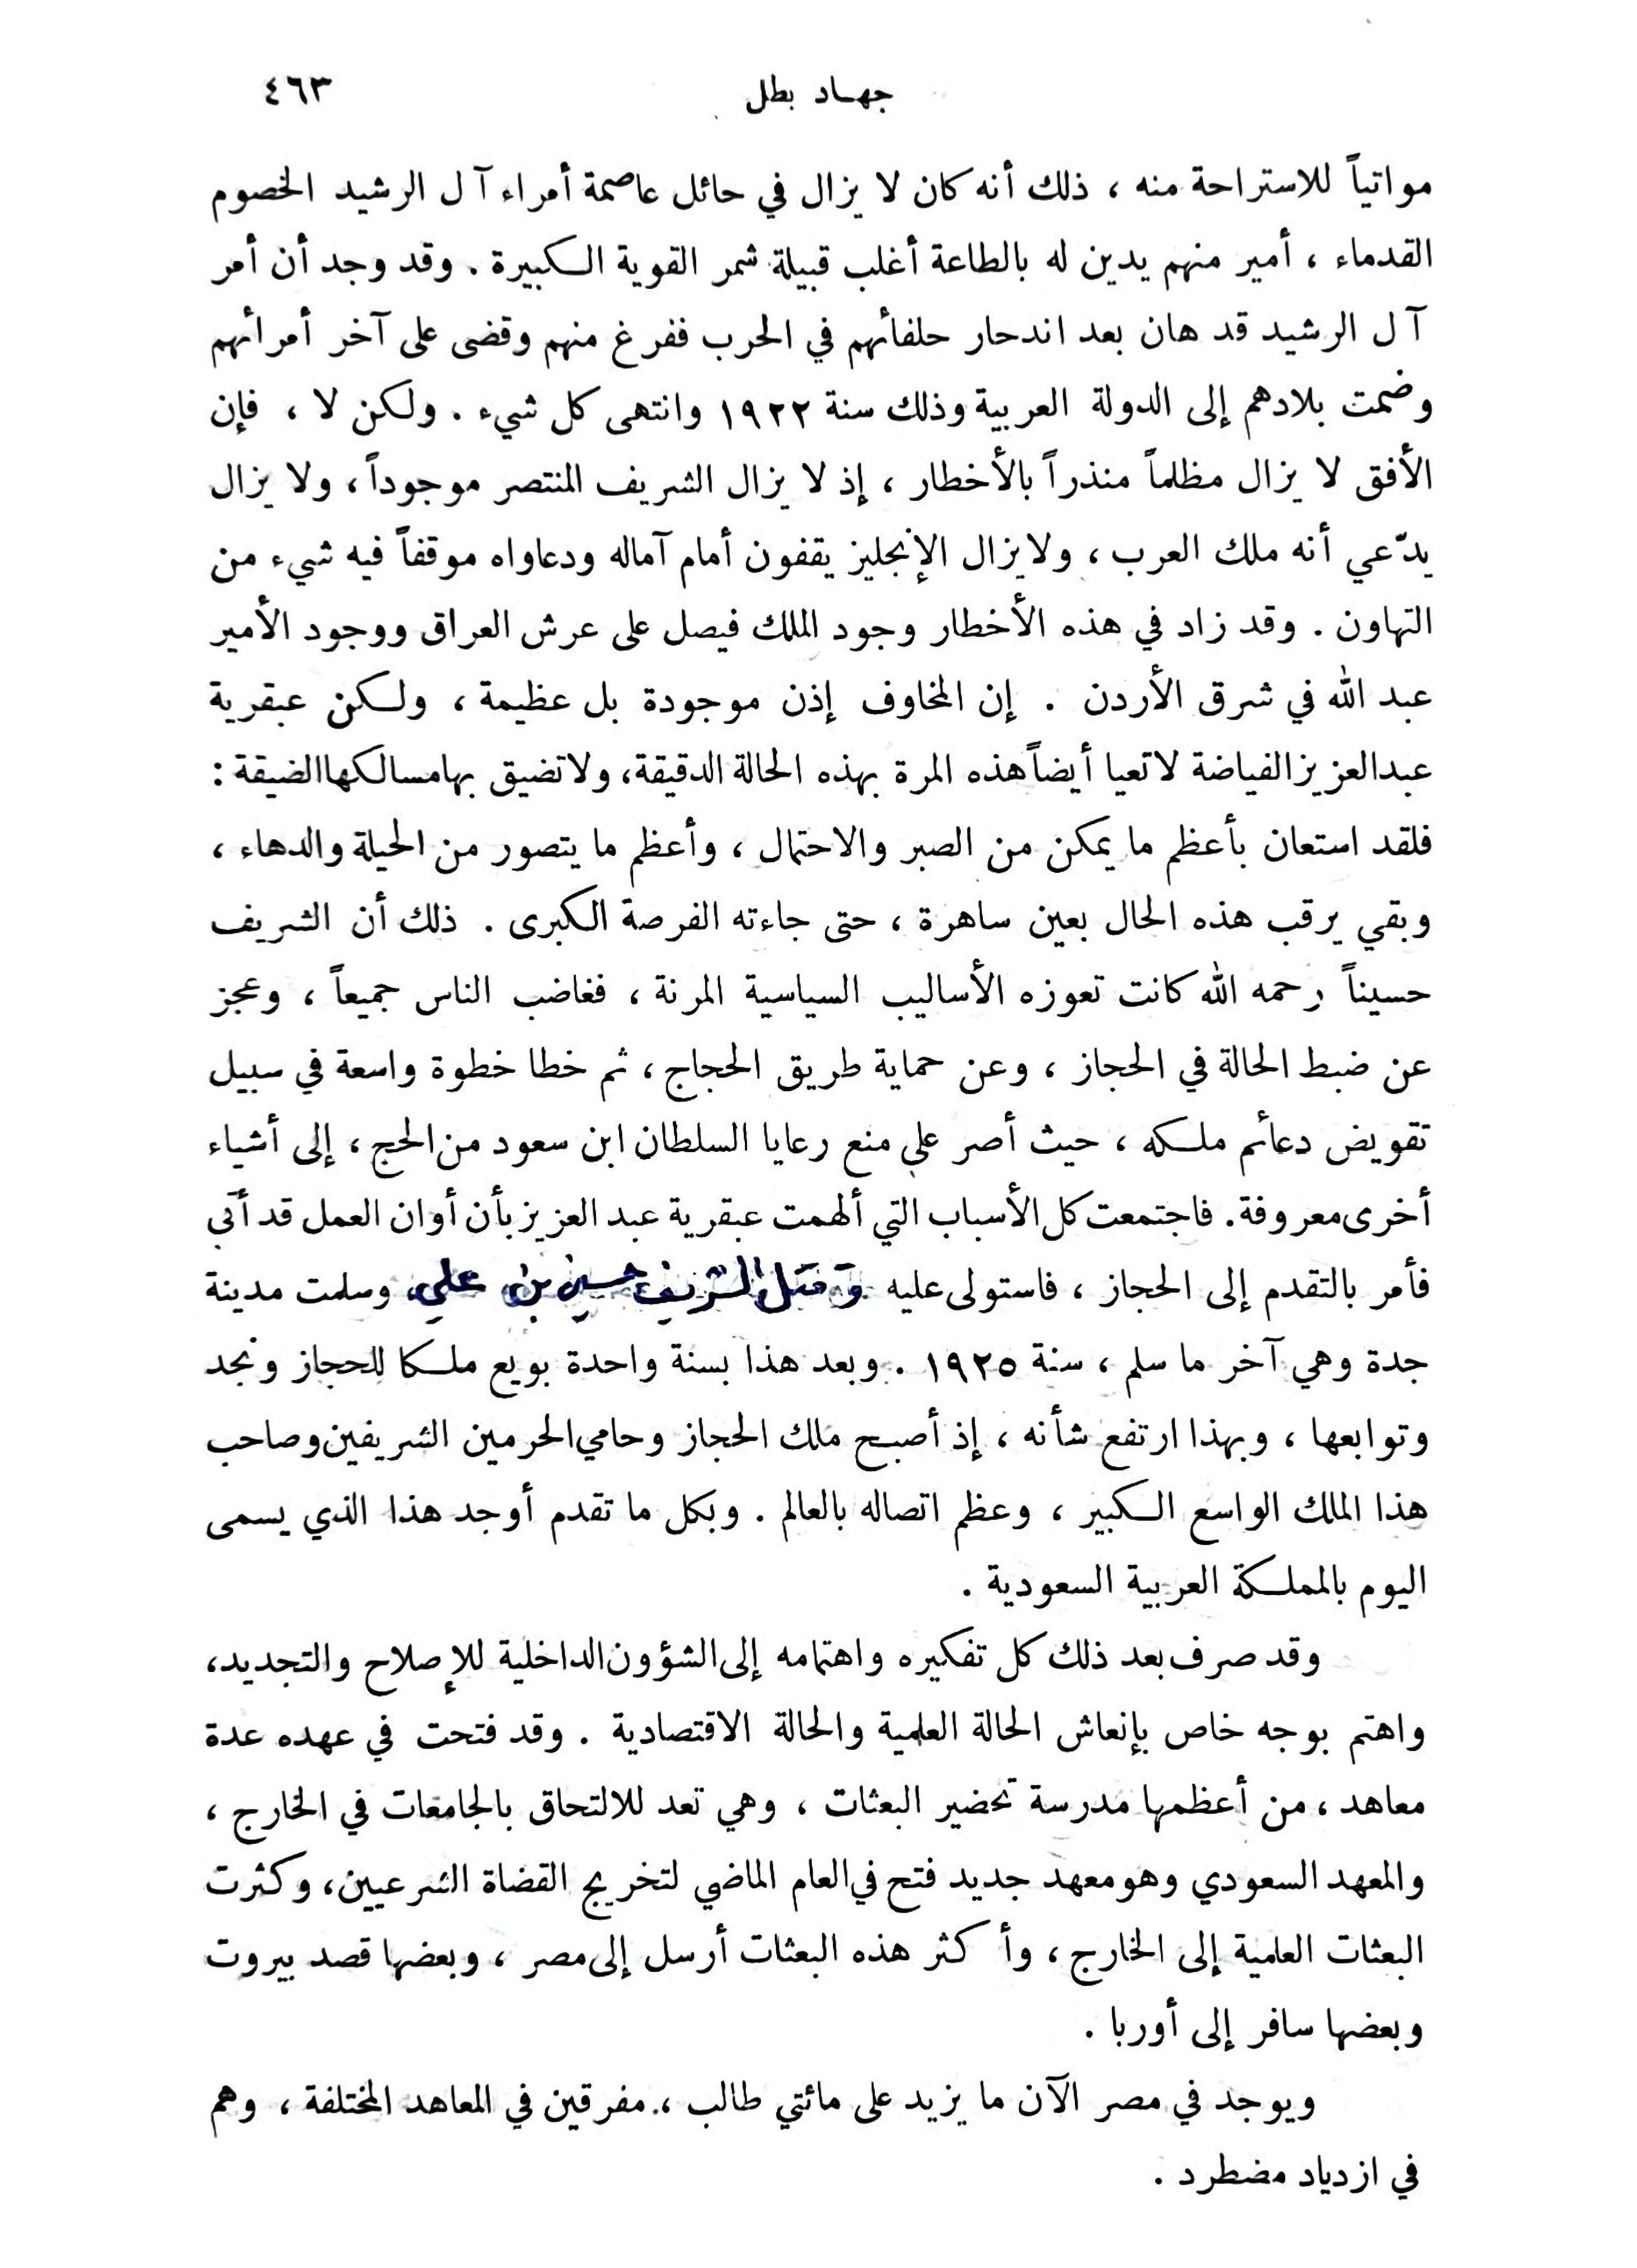 جهاد بطل ٤٦٣
مواتياً للاستراحة منه ، ذلك أنه كان لا يزال في حائل عاصمة أمراء آل الرشيد الخصوم
القدماء ، أمير منهم يدين له بالطاعة أغلب قبيلة شمر القوية الكبيرة . وقد وجد أن أمر
آل الرشيد قد هان بعد اندحار حلفائهم في الحرب ففرغ منهم وقضى على آخر أمرائهم
وضمت بلادهم إلى الدولة العربية وذلك سنة ١٩٢٢ وانتهى كل شيء . ولكن لا ، فإن
الأفق لا يزال مظلماً منذراً بالأخطار ، إذ لا يزال الشريف المنتصر موجوداً ، ولا يزال
يدّعي أنه ملك العرب ، ولا يزال الإنجليز يقفون أمام آماله ودعاواه موقفاً فيه شيء من
التهاون . وقد زاد في هذه الأخطار وجود الملك فيصل على عرش العراق ووجود الأمير
عبد الله في شرق الأردن . إن المخاوف إذن موجودة بل عظيمة ، ولكن عبقرية
عبد العزيز الفياضة لا تعيا أيضاً هذه المرة بهذه الحالة الدقيقة، ولا تضيق بها مسالكها الضيقة :
فلقد استعان بأعظم ما يمكن من الصبر والاحتمال ، وأعظم ما يتصور من الحيلة والدهاء ،
وبقي يرقب هذه الحال بعين ساهرة ، حتى جاءته الفرصة الكبرى . ذلك أن الشريف
حسيناً رحمه الله كانت تعوزه الأساليب السياسية المرنة ، فغاضب الناس جميعاً ، وعجز
عن ضبط الحالة في الحجاز ، وعن حماية طريق الحجاج ، ثم خطا خطوة واسعة في سبيل
تقويض دعائم ملكه ، حيث أصر على منع رعايا السلطان ابن سعود من الحج ، إلى أشياء
أخرى معروفة. فاجتمعت كل الأسباب التي ألهمت عبقرية عبد العزيز بأن أوان العمل قد أتى
فأمر بالتقدم إلى الحجاز ، فاستولى عليه وقتل الشريف حسين بن علي، وسلمت مدينة
جدة وهي آخر ما سلم ، سنة ١٩٢٥ . وبعد هذا بسنة واحدة بويع ملكا للحجاز ونجد
وتوابعها ، وبهذا ارتفع شأنه ، إذ أصبح ملك الحجاز وحامي الحرمين الشريفين وصاحب
هذا الملك الواسع الكبير ، وعظم اتصاله بالعالم . وبكل ما تقدم أوجد هذا الذي يسمى
اليوم بالمملكة العربية السعودية .
وقد صرف بعد ذلك كل تفكيره واهتمامه إلى الشؤون الداخلية للإصلاح والتجديد،
واهتم بوجه خاص بإنعاش الحالة العلمية والحالة الاقتصادية . وقد فتحت في عهده عدة
معاهد ، من أعظمها مدرسة تحضير البعثات ، وهي تعد للالتحاق بالجامعات في الخارج ،
والمعهد السعودي وهو معهد جديد فتح في العام الماضي لتخريج القضاة الشرعيين، وكثرت
البعثات العلمية إلى الخارج ، وأكثر هذه البعثات أرسل إلى مصر ، وبعضها قصد بيروت
وبعضها سافر إلى أوربا .
ويوجد في مصر الآن ما يزيد على مائتي طالب ، مفرقين في المعاهد المختلفة ، وهم
في ازدياد مضطرد .